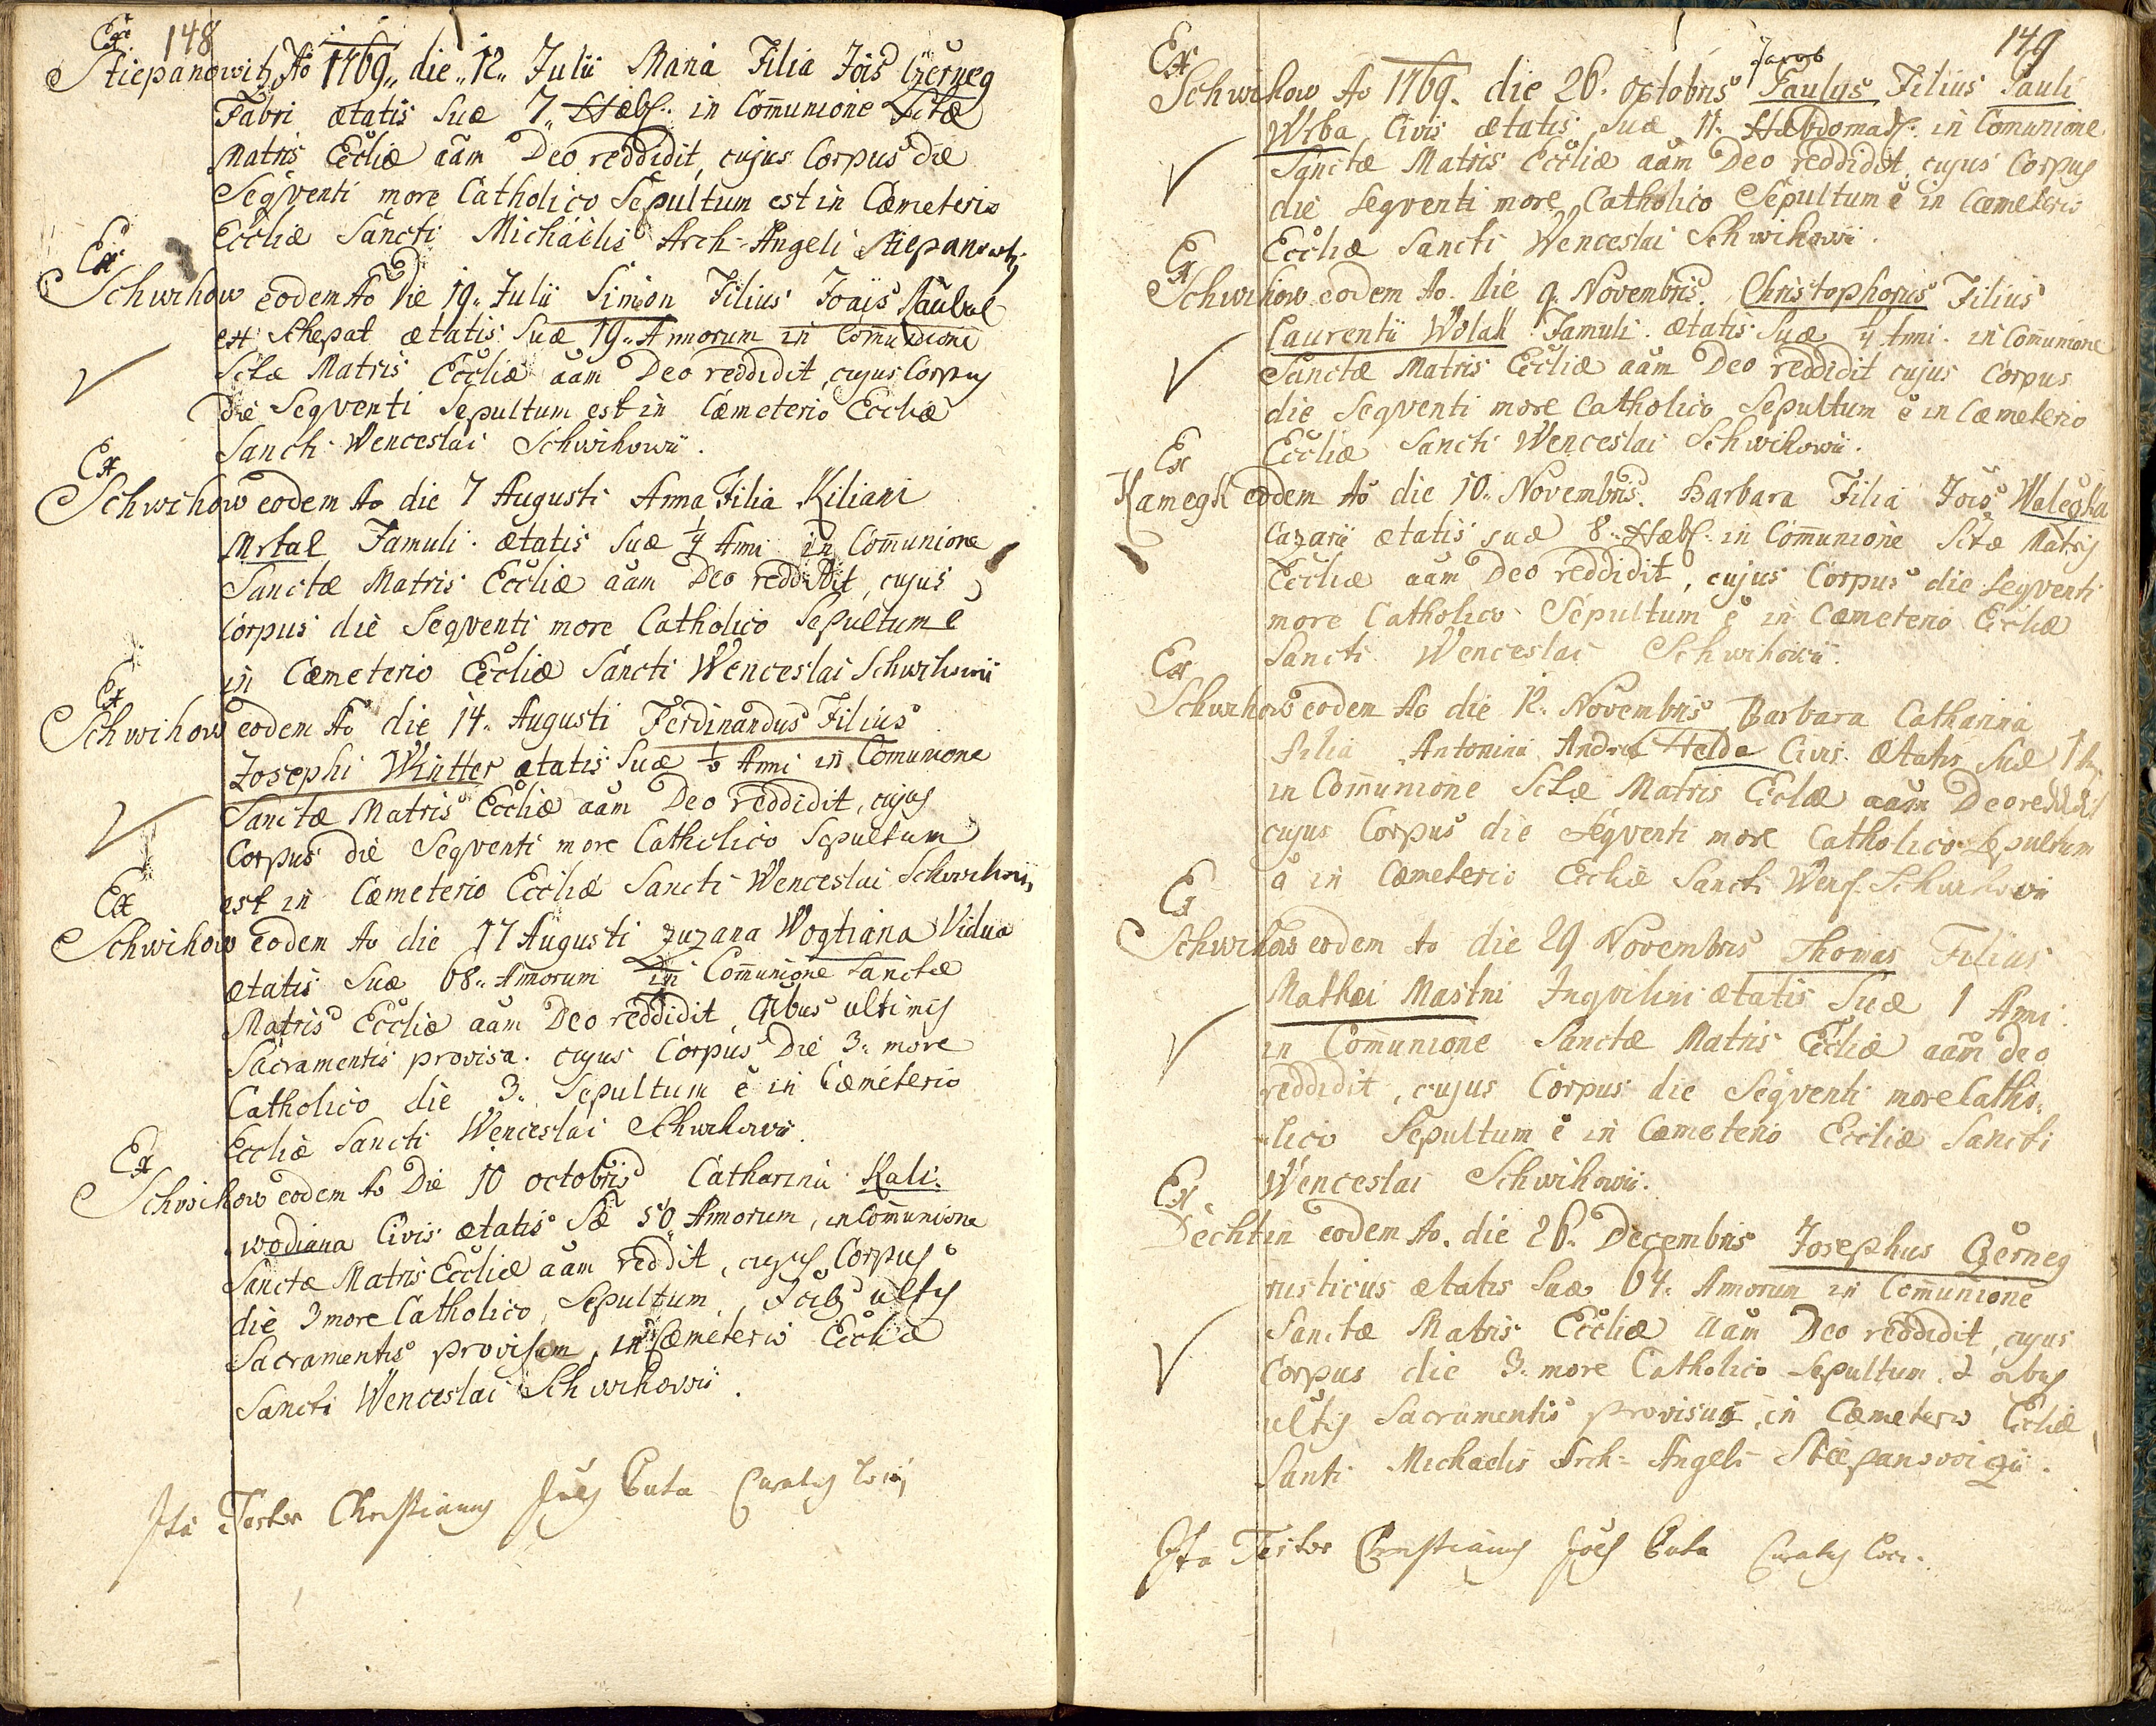 148
Ex
Stiepanowitz Ao 1769 die 12 Julii Maria Filia Jois Czerneg
Fabri ætatis suæ 7. Hæbd. in Com̄unione Sctæ
Matris Eccliæ aam Deo reddidit, cujus Corpus die
Seqventi more Catholico Sepultum est in Cæmeterio
Eccliæ Sancti Michaelis Arch-Angeli Stiepanowitz
Ex
Schwihow eodem Ao Die 19. Julii Simon Filius Joais
ex Schepat ætatis Suæ 19. Annorum in Com̄unione
Sctæ Matris Eccliæ aam Deo reddidit, cujus Corpus
die Seqventi Sepultum est in Cæmeterio Eccliæ
Sancti Wenceslai Schwihowii.
Ex
Schwihow eodem Ao die 7 Augusti Anna Filia Kiliani
Mrtal Famuli. ætatis Suæ ¼ Anni in Com̄unione
Sanctæ Matris Eccliæ aam Deo reddidit, cujus
Corpus die Seqventi more Catholico Sepultum ē
in Cæmeterio Eccliæ Sancti Wenceslai Schwihowii
Ex
Schwihow eodem Ao die 14. Augusti Ferdinandus Filius
Josephi Wintter ætatis Suæ ½ Anni in Comunione
Sanctæ Matris Eccliæ aam Deo reddidit, cujus
Corpus die Seqventi more Catholico Sepultum
est in Cæmeterio Eccliæ Sancti Wenceslai Schwihowii
Ex
Schwihow eodem Ao die 17 Augusti Zuzana Wogtiana Vidua
ætatis Suæ 68. Annorum in Com̄unione Sanctæ
Matris Eccliæ aam Deo reddidit, oībus ultimis
Sacramentis provisa. cujus Corpus Die 3. more
Catholico die 3. Sepultum ē in Cæmeterio
Eccliæ Sancti Wenceslai Schwihowii.
Ex
Schwihow eodem Ao Die 10 octobris Catharina Kali-
wodiana Civis ætatis Sæ 50 Annorum, in Com̄unione
Sanctæ Matris Eccliæ aam reddit, cujus Corpus
die 3 more Catholico, Sepultum, ultis
Sacramentis provisam, in Cæmeterio Eccliæ
Sancti Wenceslai Schwihowii.
Ita Testor Christianus Joes Curatus loci
149
Ex
Jacob
Schwihow Ao 1769. die 26. octobris Paulus Filius Pauli
Wrba Civis ætatis Suæ 11. Hæbdomad. in Comunione
Sanctæ Matris Eccliæ aam Deo reddidit, cujus Corpus
die Seqventi more Catholico Sepultum ē in Cæmeterio
Eccliæ Sancti Wenceslai Schwihowii.
Ex
Schwihow eodem Ao. die 9. Novembris. Christophorus Filius
Laurentii Wolak Famuli. ætatis Suæ ¼ Anni. in Com̄unione
Sanctæ Matris Eccliæ aam Deo reddidit cujus Corpus
die Seqventi more Catholico Sepultum ē in Cæmeterio
Eccliæ Sancti Wenceslai Schwihowii.
Ex
Kamegk eodem Ao die 10. Novembris. Barbara Filia Jois Walegka
Casarii ætatis suæ 8. Hæbd. in Com̄unione Sctæ Matris
Eccliæ aam Deo reddidit, cujus Corpus die Seqventi
more Catholico Sepultum ē in Cæmeterio Eccliæ
Sancti Wenceslai Schwihowii.
Ex
Schwihow eodem Ao die 12. Novembris Barbara Catharina
Filia Antonini Andreæ Helda Civis. ætatis Suæ
in Com̄unione Sctæ Matris Eccliæ aam Deo reddidit
cujus Corpus die Seqventi more Catholico Sepultum
ē in Cæmeterio Eccliæ Sancti Wenc. Schwihowii
Ex
Schwihow eodem Ao die 29 Novembris Thomas Filius
Mathæi Mastni Inqvilini ætatis Suæ 1 Ani.
in Com̄unione Sanctæ Matris Eccliæ aam Deo
reddidit, cujus Corpus die Seqventi more Catho-
lico Sepultum ē in Cæmeterio Eccliæ Sancti
Wenceslai Schwihowii.
Ex
Dechtin eodem Ao. die 26. Decembris Josephus Czerneg
rusticus ætatis Suæ 64. Annorum in Com̄unione
Sanctæ Matris Eccliæ aam Deo reddidit, cujus
Corpus die 3. more Catholico Sepultum. oībus
ultis Sacramentis provisus, in Cæmeterio Eccliæ
Santi Michaelis Arch-Angeli Stiepanowizii.
Ita Testor Christianus Joes Curatus loci.